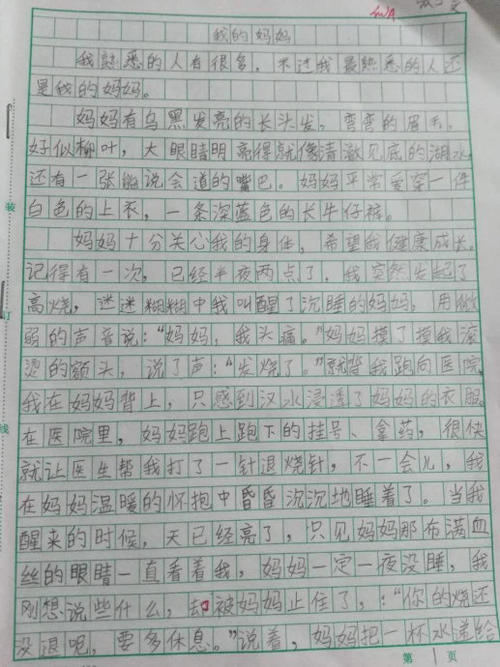 我的妈妈
我熟悉的人有很多，不过我最熟悉的人还
是我的妈妈。
妈妈有乌黑发亮的长头发，弯弯的眉毛，
好似柳叶，大眼睛明亮得就像清澈见底的湖水
还有一张能说会道的嘴巴。妈妈平常爱穿一件
白色的上衣，一条深蓝色的长牛仔裤。
妈妈十分关心我的身体，希望我健康成长。
记得有一次，已经半夜两点了，我突然发起了
高烧，迷迷糊糊中我叫醒了沉睡的妈妈，用微
弱的声音说：“妈妈，我头痛。”妈妈摸了摸我滚
烫的额头，说了声：“发烧了。”就背我跑向医院
我在妈妈背上，只感到汗水浸透了妈妈的衣服
在医院里，妈妈跑上跑下的挂号、拿药，很快
就让医生帮我打了一针退烧针，不一会儿，我
在妈妈温暖的怀抱中昏昏沉沉地睡着了。当我
醒来的时候，天已经亮了，只见妈妈那布满血
丝的眼睛一直看着我，妈妈一定一夜没睡，我
刚想说些什么，却被妈妈止住了，：“你的烧还
没退呢，要多休息。”说着，妈妈把一杯水递给
装
订
线
第 1 页